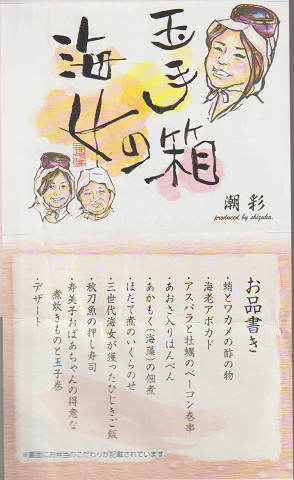 海女の
玉手箱
潮彩
produced by shizuka.
お品書き
・蛸とワカメの酢の物
・海老アボカド
・アスパラと牡蠣のベーコン巻串
・あおさ入りはんぺん
・あかもく(海藻)の佃煮
・ほたて煮のいくらのせ
・三世代海女が獲ったひじきご飯
・秋刀魚の押し寿司
・寿美子おばあちゃんの得意な
煮炊きものと玉子巻
・デザート
※裏面にお弁当のこだわりが記載されています。